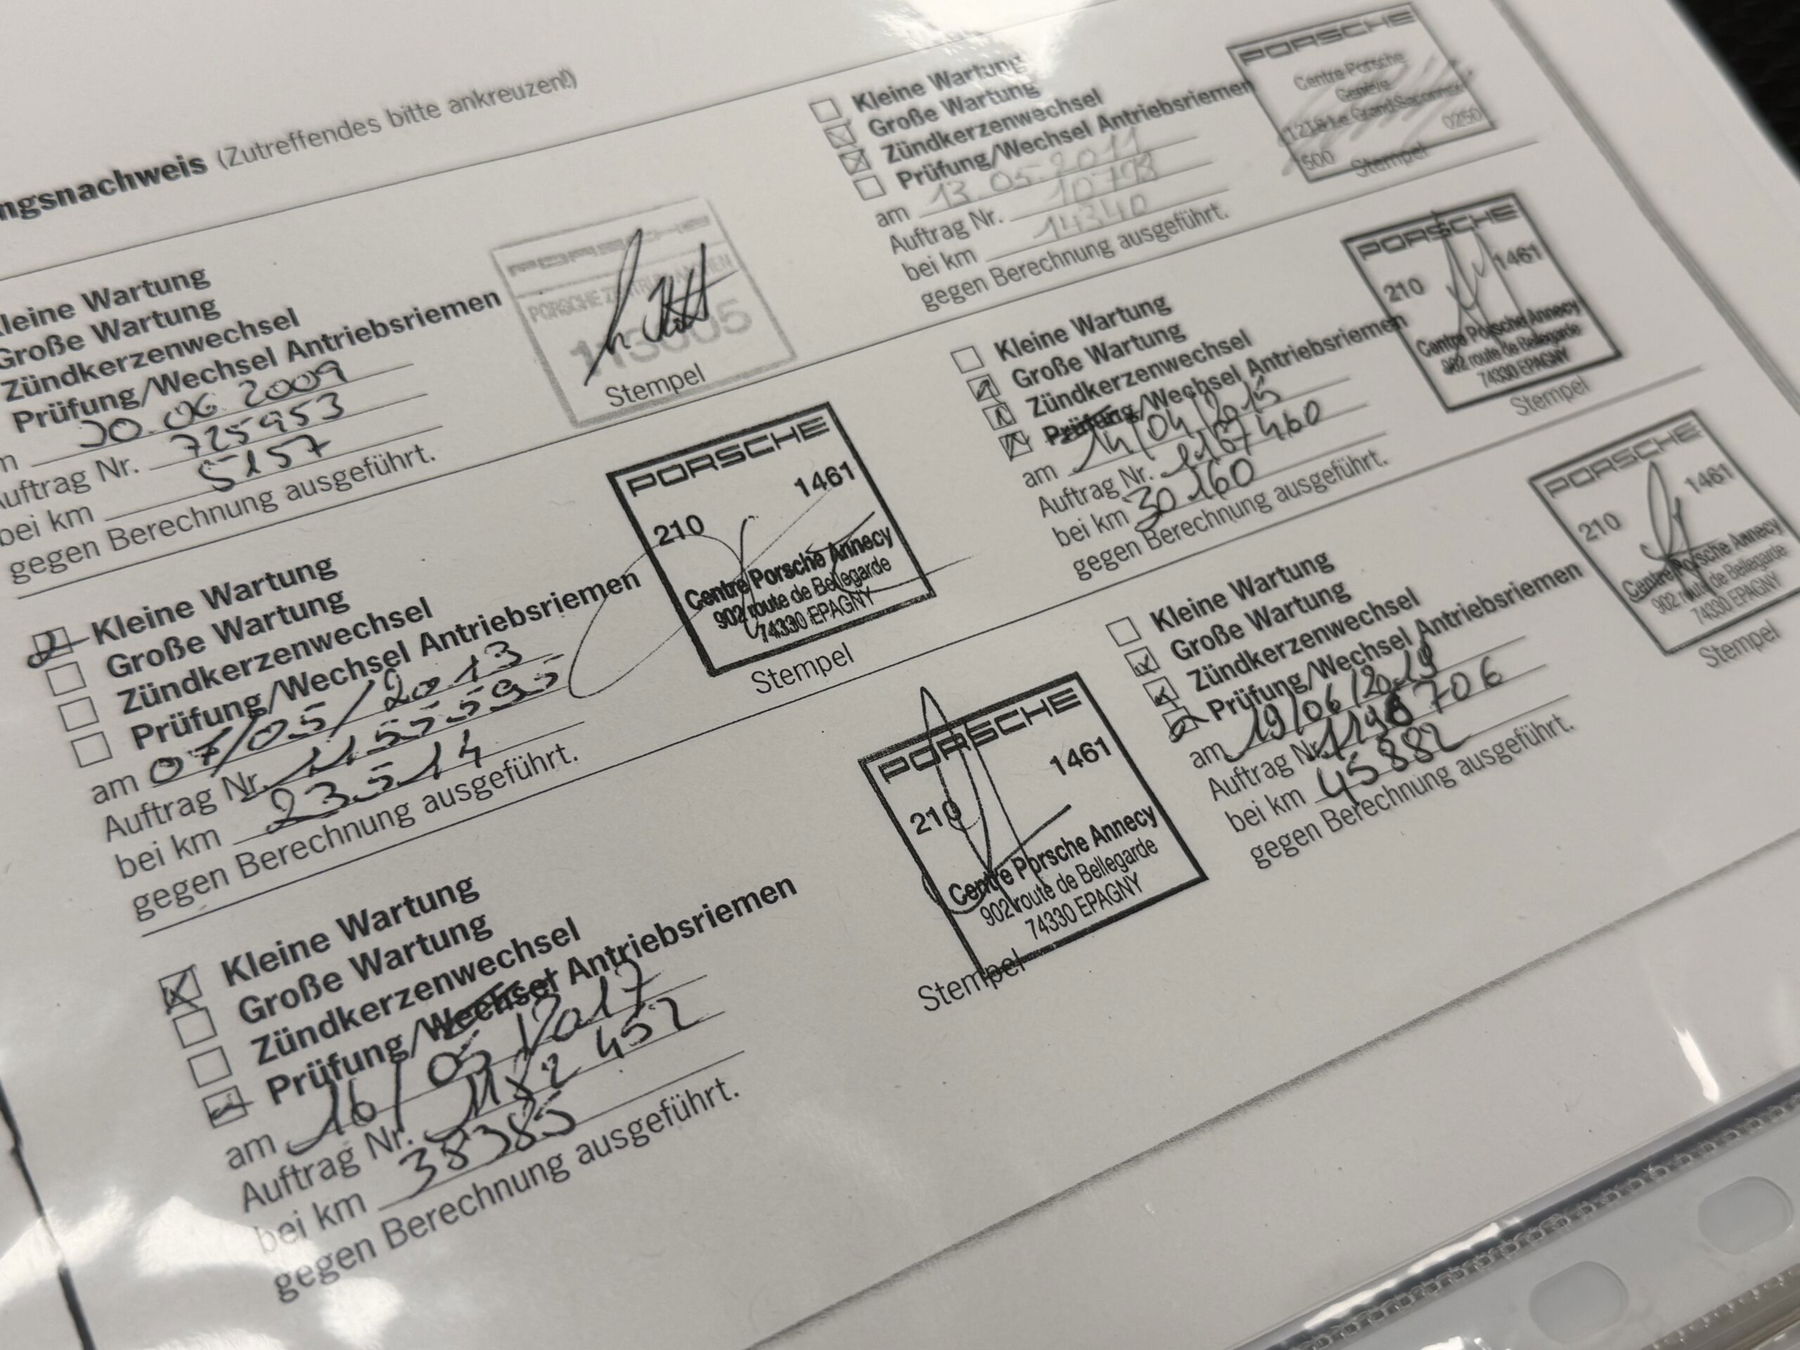 ngsnachweis (Zutreffendes bitte ankreuzen!)
Kleine Wartung
Große Wartung
Zündkerzenwechsel
Prüfung/Wechsel Antriebsriemen
30.06.2009
Auftrag Nr. 725953
bei km 5157
gegen Berechnung ausgeführt.
PORSCHE
Stempel
Kleine Wartung
Große Wartung
Zündkerzenwechsel
Prüfung/Wechsel Antriebsriemen
am 13.05.2011
Auftrag Nr. 10798
bei km 14340
gegen Berechnung ausgeführt.
PORSCHE
Centre Porsche
Genève
1218 Le Grand-Saconnex
1500 0250
Stempel
Kleine Wartung
Große Wartung
Zündkerzenwechsel
Prüfung/Wechsel Antriebsriemen
am 07/05/2013
Auftrag Nr. 1155595
bei km 23514
gegen Berechnung ausgeführt.
PORSCHE
210 1461
Centre Porsche Annecy
902 route de Bellegarde
74330 EPAGNY
Stempel
Kleine Wartung
Große Wartung
Zündkerzenwechsel
Prüfung/Wechsel Antriebsriemen
am 14/04/2015
Auftrag Nr. 1167460
bei km 30160
gegen Berechnung ausgeführt.
PORSCHE
210 1461
Centre Porsche Annecy
902 route de Bellegarde
74330 EPAGNY
Stempel
Kleine Wartung
Große Wartung
Zündkerzenwechsel
Prüfung/Wechsel Antriebsriemen
am 16/05/2017
Auftrag Nr. 1182452
bei km 38385
gegen Berechnung ausgeführt.
PORSCHE
210 1461
Centre Porsche Annecy
902 route de Bellegarde
74330 EPAGNY
Stempel
Kleine Wartung
Große Wartung
Zündkerzenwechsel
Prüfung/Wechsel Antriebsriemen
am 19/06/2019
Auftrag Nr. 1196706
bei km 45882
gegen Berechnung ausgeführt.
PORSCHE
210 1461
Centre Porsche Annecy
902 route de Bellegarde
74330 EPAGNY
Stempel